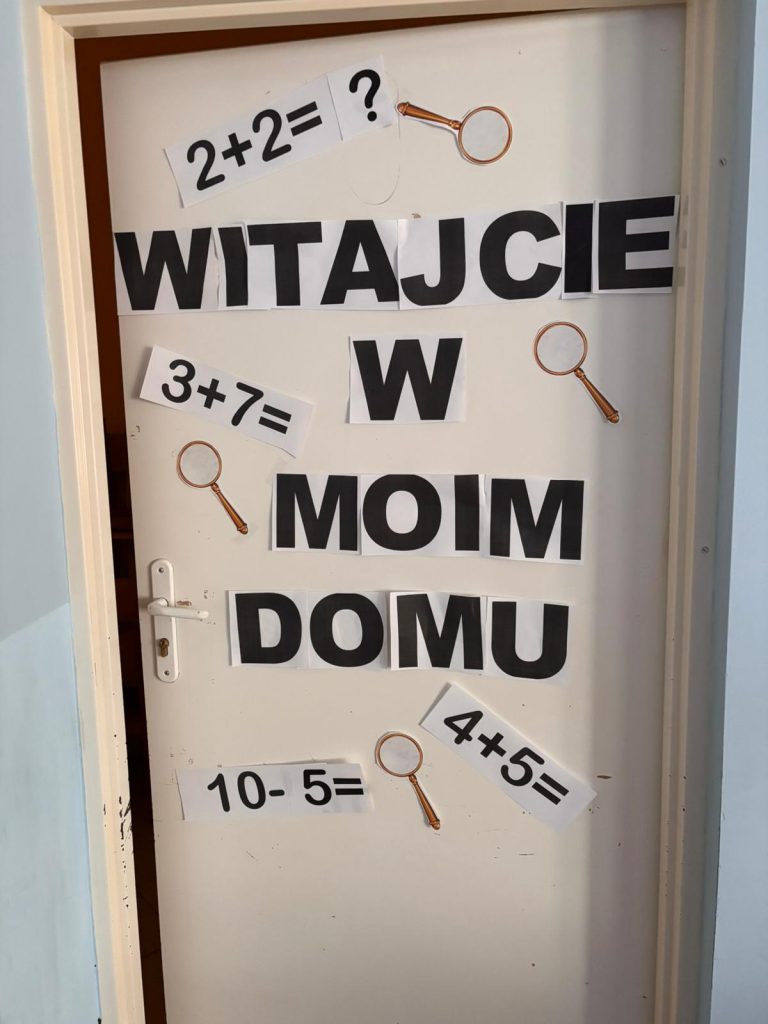 2+2= ?
WITAJCIE
W
3+7=
MOIM
DOMU
4+5=
10- 5=